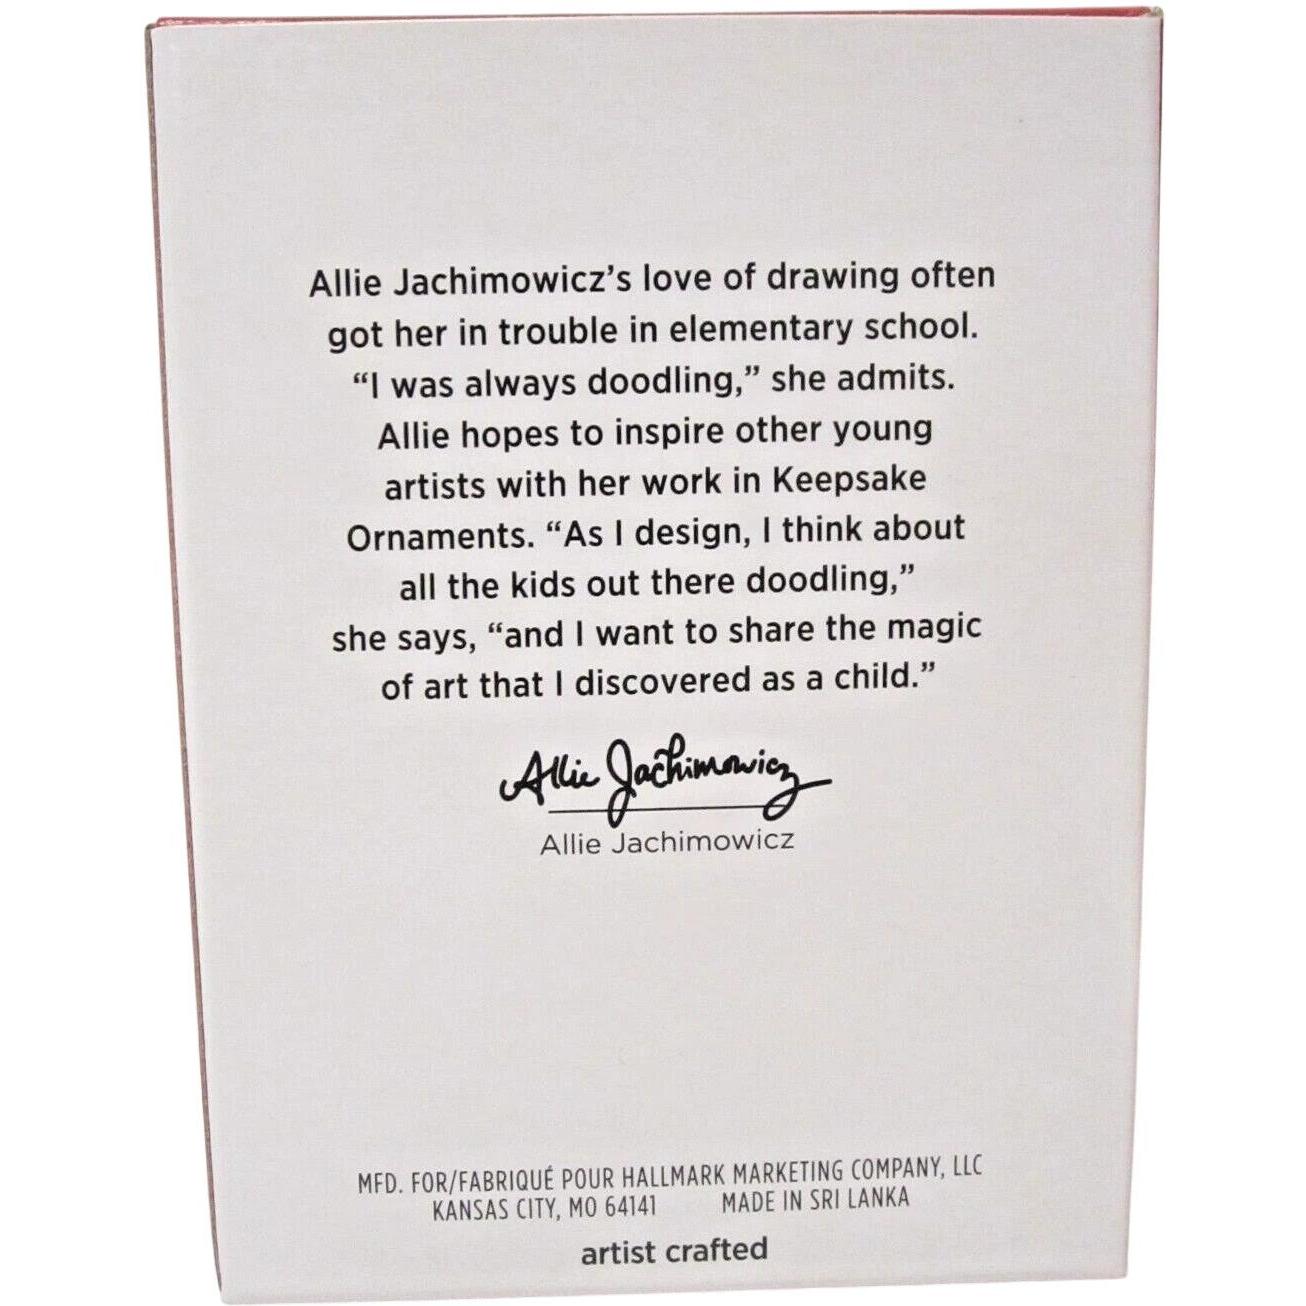 Allie Jachimowicz’s love of drawing often
got her in trouble in elementary school.
“I was always doodling,” she admits.
Allie hopes to inspire other young
artists with her work in Keepsake
Ornaments. “As I design, I think about
all the kids out there doodling,”
she says, “and I want to share the magic
of art that I discovered as a child.”
Allie Jachimowicz
Allie Jachimowicz
MFD. FOR/FABRIQUÉ POUR HALLMARK MARKETING COMPANY, LLC
KANSAS CITY, MO 64141 MADE IN SRI LANKA
artist crafted